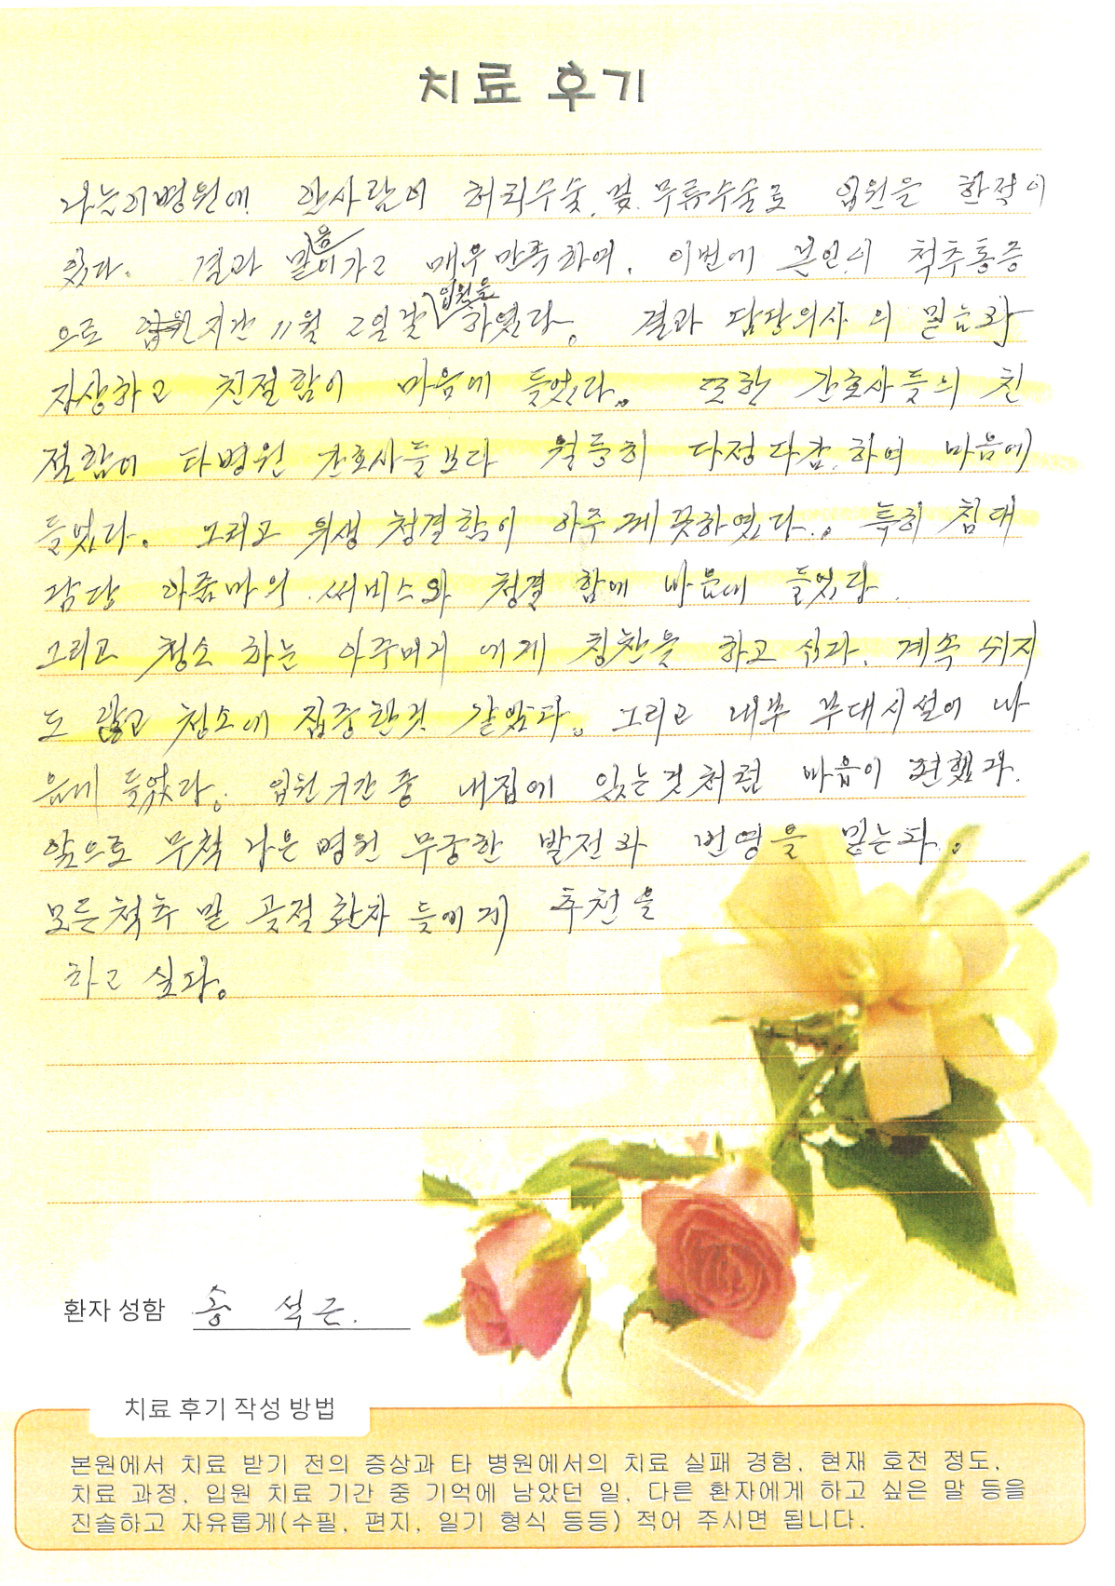 치료 후기
나는이병원에 안사람이 허리수술, 및 무릎수술로 입원을 한적이
있다. 결과 믿음이가고 매우만족하여, 이번에 본인이 척추통증
으로 11월 2일날 입원을 하였다. 결과 담당의사 의 믿음과
자상하고 친절함이 마음에 들었다. 또한 간호사들의 친
절함이 타병원 간호사들보다 월등히 다정다감.하여 마음에
들었다. 그리고 위생청결함이 아주 깨끗하였다. 특히 침대
담당 아줌마의 써비스와 청결 함에 마음에 들었다.
그리고 청소 하는 아주머니 에게 칭찬을 하고 싶다. 계속 쉬지
도 않고 청소에 집중한것 같았다. 그리고 내부 부대시설이 마
음에 들었다. 입원기간 중 내집에 있는것처럼 마음이 편했다.
앞으로 무척 나은병원 무궁한 발전과 번영을 믿는다.
모든척추 및 골절환자 들에게 추천을
하고 싶다.
환자 성함 송 석근.
치료 후기 작성 방법
본원에서 치료 받기 전의 증상과 타 병원에서의 치료 실패 경험, 현재 호전 정도,
치료 과정, 입원 치료 기간 중 기억에 남았던 일, 다른 환자에게 하고 싶은 말 등을
진솔하고 자유롭게(수필, 편지, 일기 형식 등등) 적어 주시면 됩니다.